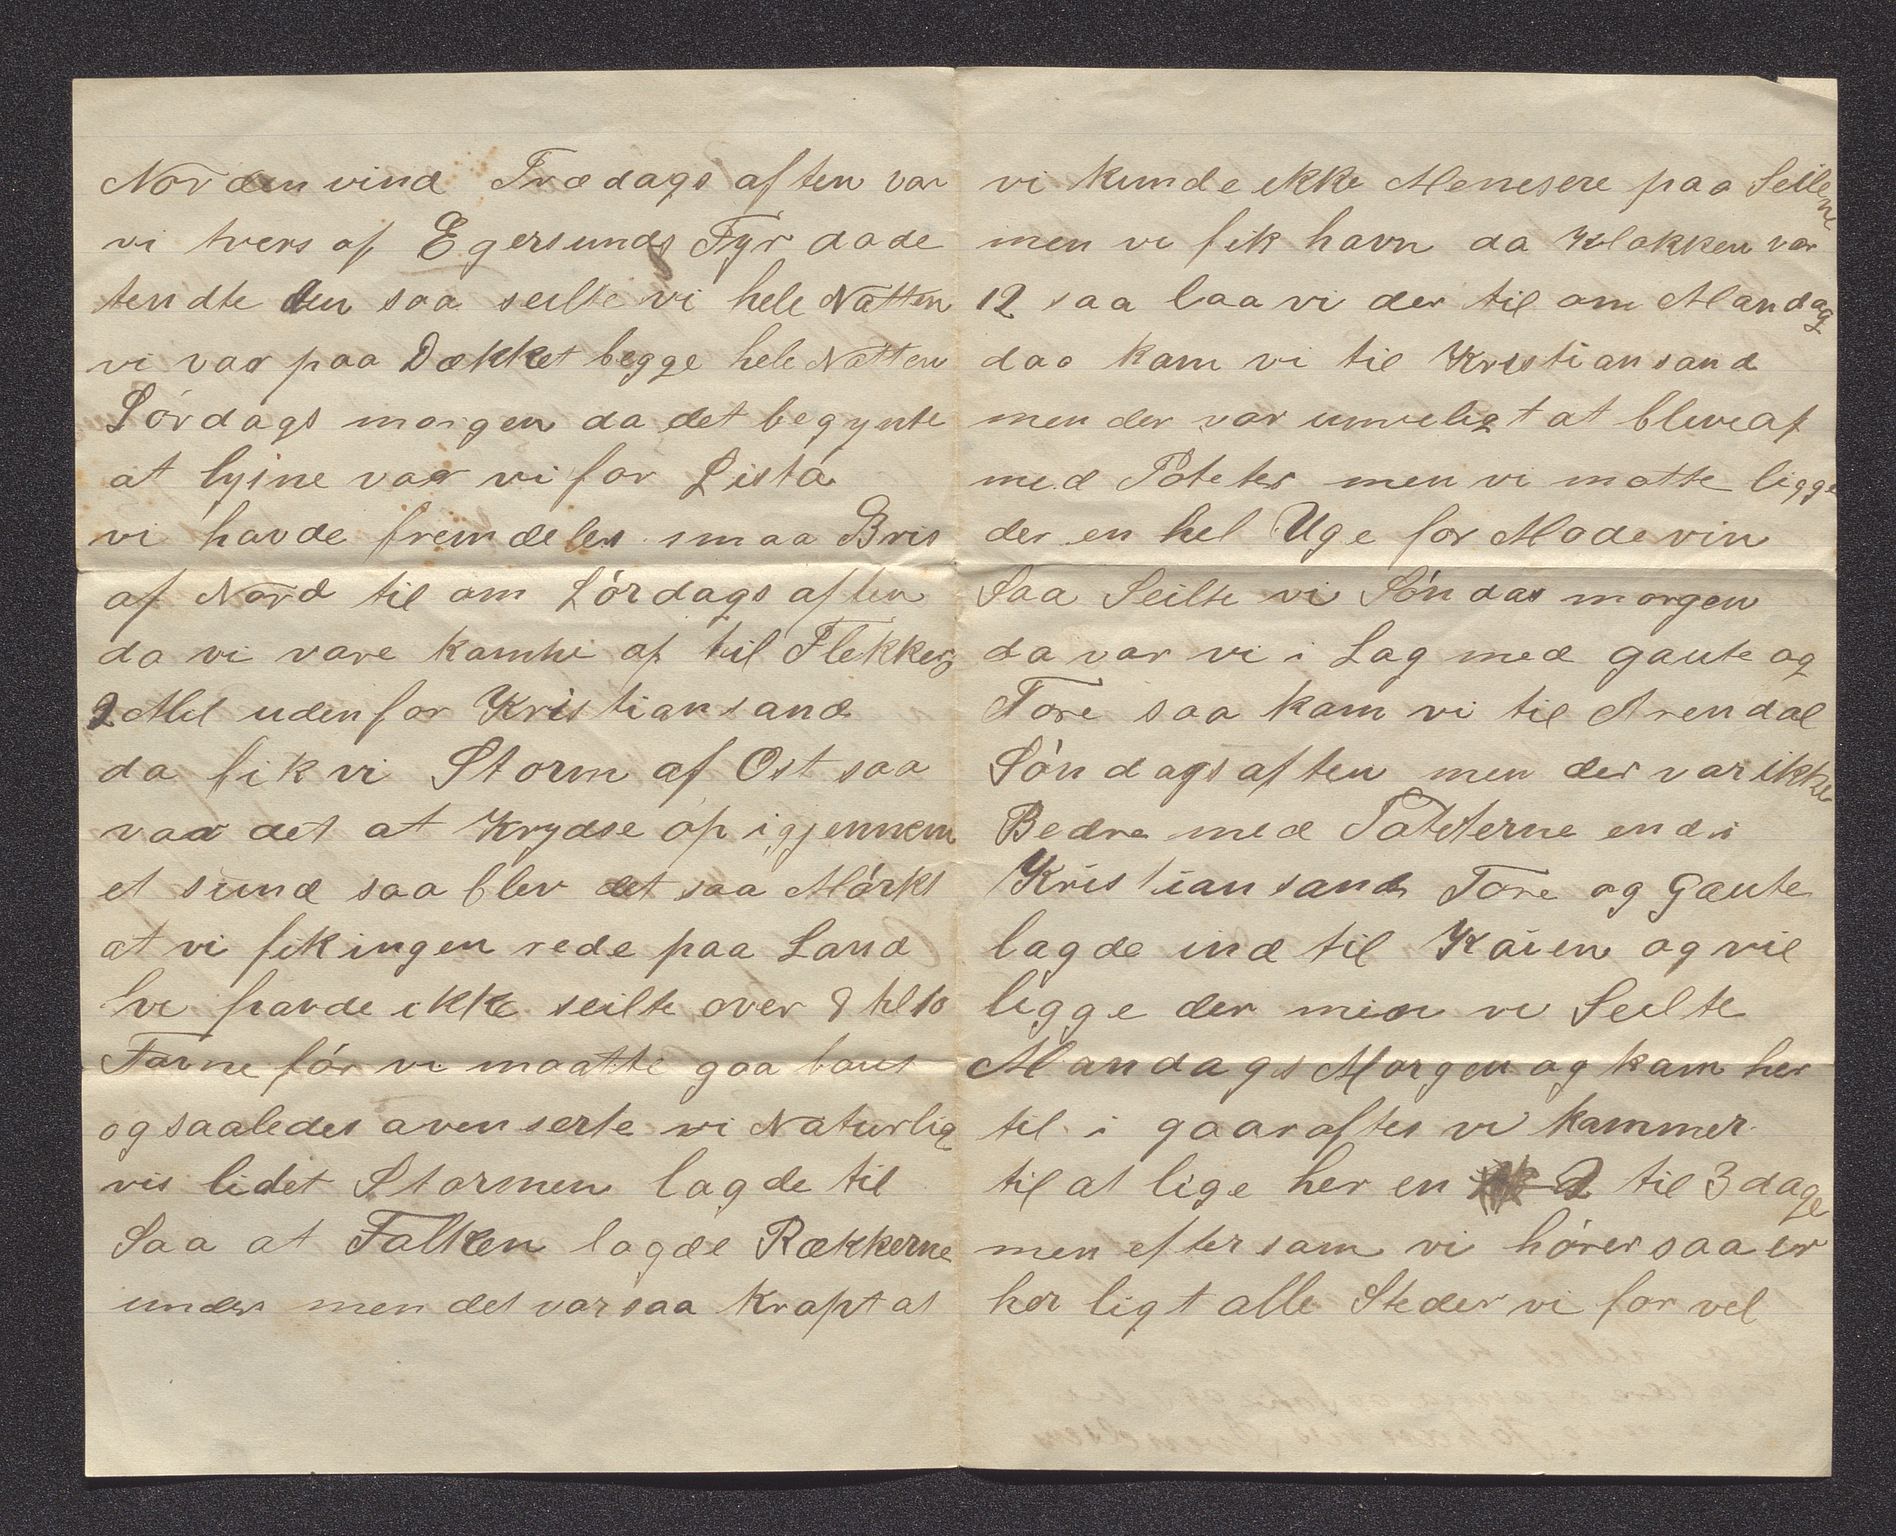 Norden vind Fredags aften var
vi tvers af Egersunds Fyr dade
tendte den saa seilte vi hele Natten
vi var paa Dækket begge hele Natten
Lørdags morgen da det begynte
at lysne var vi for Lista
vi havde fremdeles smaa Bris
af Nord til om Lørdags aften
da vi vare komne af til Flekkerø
2 Mil udenfor Kristiansand
da fik vi Storm af Ost saa
var det at Krydse op igjennem
et sund saa blev det saa Mørkt
at vi fik ingen rede paa Land
vi havde ikke seilte over 8 til 10
Favne før vi maatte gaa baut
og saaledes avenserte vi Naturlig
vis lidet Stormen lagde til
Saa at Falken lagde Rækkerne
under men det var saa Krapt at
vi kunde ikke Menesere paa Seilene
men vi fik havn da Klokken var
12 saa laa vi der til om Mandag
daa kom vi til Kristiansand
men der var umveligt at blive af
med Poteter men vi motte ligge
der en hel Uge for Modevin
Saa Seilte vi Søndas morgen
da var vi i Lag med Gaute og
Tore saa kom vi til Arendal
Søndags aften men der var ikke
Bedre med Poteterne end i
Kristiansand Tore og Gaute
lagde ind til Kaien og vil
ligge der men vi Seilte
Mandags Morgen og kom her
til i gaaraftes vi kommer
til at lige her en 2 til 3 dage
men eftersom vi hører saa er
her ligt alle Steder vi for vel